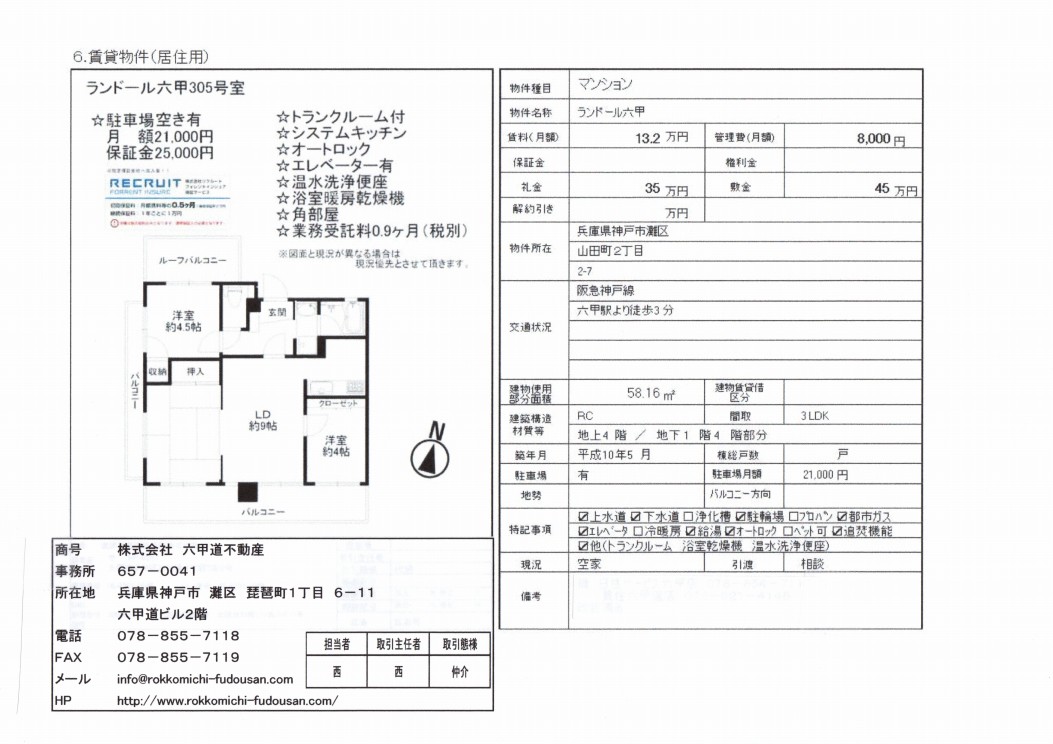 6.賃貸物件(居住用)
ランドール六甲305号室
☆駐車場空き有
月　額21,000円
保証金25,000円
RECRUIT
FORRENT INSURE
☆トランクルーム付
☆システムキッチン
☆オートロック
☆エレベーター有
☆温水洗浄便座
☆浴室暖房乾燥機
☆角部屋
☆業務受託料0.9ヶ月(税別)
※図面と現況が異なる場合は
現況優先とさせて頂きます。
ルーフバルコニー
洋室
約4.5帖
玄関
収納
押入
バルコニー
LD
約9帖
クローゼット
洋室
約4帖
N
バルコニー
物件種目 マンション
物件名称 ランドール六甲
賃料(月額) 13.2 万円 管理費(月額) 8,000 円
保証金 権利金
礼金 35 万円 敷金 45 万円
解約引き 万円
物件所在 兵庫県神戸市灘区
山田町2丁目
2-7
交通状況 阪急神戸線
六甲駅より徒歩3分
建物使用部分面積 58.16 ㎡ 建物賃貸借区分
建築構造材質等 RC 間取 3LDK
地上4 階 ／ 地下1 階4 階部分
築年月 平成10年5 月 棟総戸数 戸
駐車場 有 駐車場月額 21,000 円
地勢 バルコニー方向
特記事項 ☑上水道 ☑下水道 □浄化槽 ☑駐輪場 □プロパン ☑都市ガス
☑エレベータ □冷暖房 ☑給湯 ☑オートロック □ペット可 ☑追焚機能
☑他(トランクルーム 浴室乾燥機 温水洗浄便座)
現況 空家 引渡 相談
備考
商号 株式会社 六甲道不動産
事務所 657－0041
所在地 兵庫県神戸市 灘区 琵琶町1丁目 6－11
六甲道ビル2階
電話 078－855－7118
FAX 078－855－7119
メール info@rokkomichi-fudousan.com
HP http://www.rokkomichi-fudousan.com/
担当者 取引主任者 取引態様
西 西 仲介